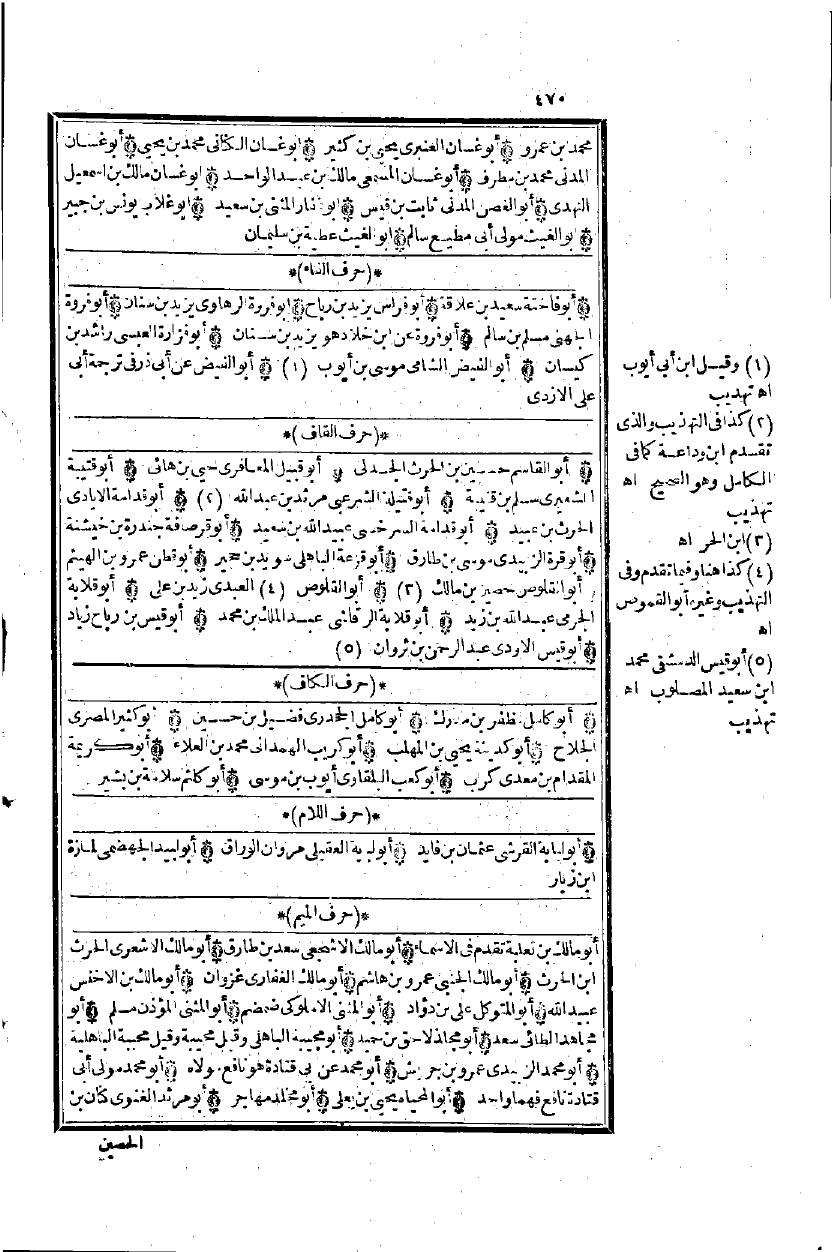 ٤٧٠
محمد بن عمرو ۞ أبو غسان العنبرى يحيى بن كثير ۞ ابو غسان الكنانى محمد بن يحيى ۞ أبو غسان
المدنى محمد بن مطرف ۞ أبو غسان المسمعى مالك بن عبد الواحد ۞ ابو غسان مالك بن اسمعيل
النهدى ۞ أبو الغصن المدنى ثابت بن قيس ۞ ابو غفار المثنى بن سعيد ۞ ابو غلاب يونس بن جبير
۞ ابو الغيث مولى أبى مطيع سالم ۞ ابو الغيث عطية بن سليمان
*(حرف الفاء)*
۞ أبو فاختة سعيد بن علاقة ۞ أبو فراس يزيد بن رباح ۞ ابو فروة الرهاوى يزيد بن سنان ۞ أبو فروة
الجهنى مسلم بن سالم ۞ أبو فروة عن ابن خلاد هو يزيد بن سنان ۞ أبو فزارة العبسى راشد بن
كيسان ۞ أبو الفيض الشامى موسى بن أيوب (١) ۞ أبو الفيض عن أبى ذر فى ترجمة أبى
على الازدى
*(حرف القاف)*
۞ أبو القاسم حسين بن الحرث الجدلى ۞ أبو قبيل المعافرى حيى بن هانى ۞ أبو قتيبة
الشعيرى سلم بن قتيبة ۞ أبو قتيلة الشرعبى مرثد بن عبد الله (٢) ۞ أبو قدامة الايادى
الحرث بن عبيد ۞ أبو قدامة السرخسى عبيد الله بن سعيد ۞ أبو قرصافة جندرة بن خيشنة
۞ أبو قرة الزبيدى موسى بن طارق ۞ أبو قزعة الباهلى سويد بن حجير ۞ أبو قطن عمرو بن الهيثم
۞ أبو القلوص حصين بن مالك (٣) ۞ أبو القلوص (٤) العبدى زيد بن على ۞ أبو قلابة
الجرمى عبد الله بن زيد ۞ أبو قلابة الرقاشى عبد الملك بن محمد ۞ أبو قيس بن رباح زياد
۞ أبو قيس الاودى عبد الرحمن بن ثروان (٥)
*(حرف الكاف)*
۞ أبو كامل مظفر بن مدرك ۞ أبو كامل الجحدرى فضيل بن حسين ۞ ابو كثير المصرى
الجلاح ۞ أبو كدينة يحيى بن المهلب ۞ أبو كريب الهمدانى محمد بن العلاء ۞ أبو كريمة
المقدام بن معدى كرب ۞ أبو كعب البلقاوى أيوب بن موسى ۞ أبو كلثم سلامة بن بشير
*(حرف اللام)*
۞ أبو لبابة القرشى عثمان بن فايد ۞ أبو لبابة العقيلى مروان الوراق ۞ أبو لبيد الجهضمى لمازة
ابن زبار
*(حرف الميم)*
أبو مالك بن ثعلبة تقدم فى الاسماء ۞ أبو مالك الاشجعى سعد بن طارق ۞ أبو مالك الاشعرى الحرث
ابن الحرث ۞ أبو مالك الجنبى عمرو بن هاشم ۞ أبو مالك الغفارى غزوان ۞ أبو مالك بن الاخنس
عبيد الله ۞ أبو المتوكل على بن دؤاد ۞ أبو المثنى الاملوكى ضمضم ۞ أبو المثنى المؤذن مسلم ۞ أبو
مجاهد الطائى سعد ۞ أبو مجلز لاحق بن حميد ۞ أبو مجيبة الباهلى وقيل مجيبة وقيل مجيبة الباهلية
۞ أبو محمد الزبيدى عمرو بن حريش ۞ أبو محمد عن أبى قتادة هو نافع مولاه ۞ أبو محمد مولى أبى
قتادة نافع فهما واحد ۞ أبو المحياه يحيى بن يعلى ۞ أبو مخلد مهاجر ۞ أبو مرثد الغنوى كنان بن
الحصين
(١) وقيل ابن أبى أيوب
اه تهذيب
(٢) كذا فى التهذيب والذى
تقدم ابن وداعة كما فى
الكامل وهو الصحيح اه
تهذيب
(٣) ابن الحر اه
(٤) كذا هنا وفيما تقدم وفى
التهذيب وغيره أبو القموص
اه
(٥) أبو قيس الدمشقى محمد
ابن سعيد المصلوب اه
تهذيب